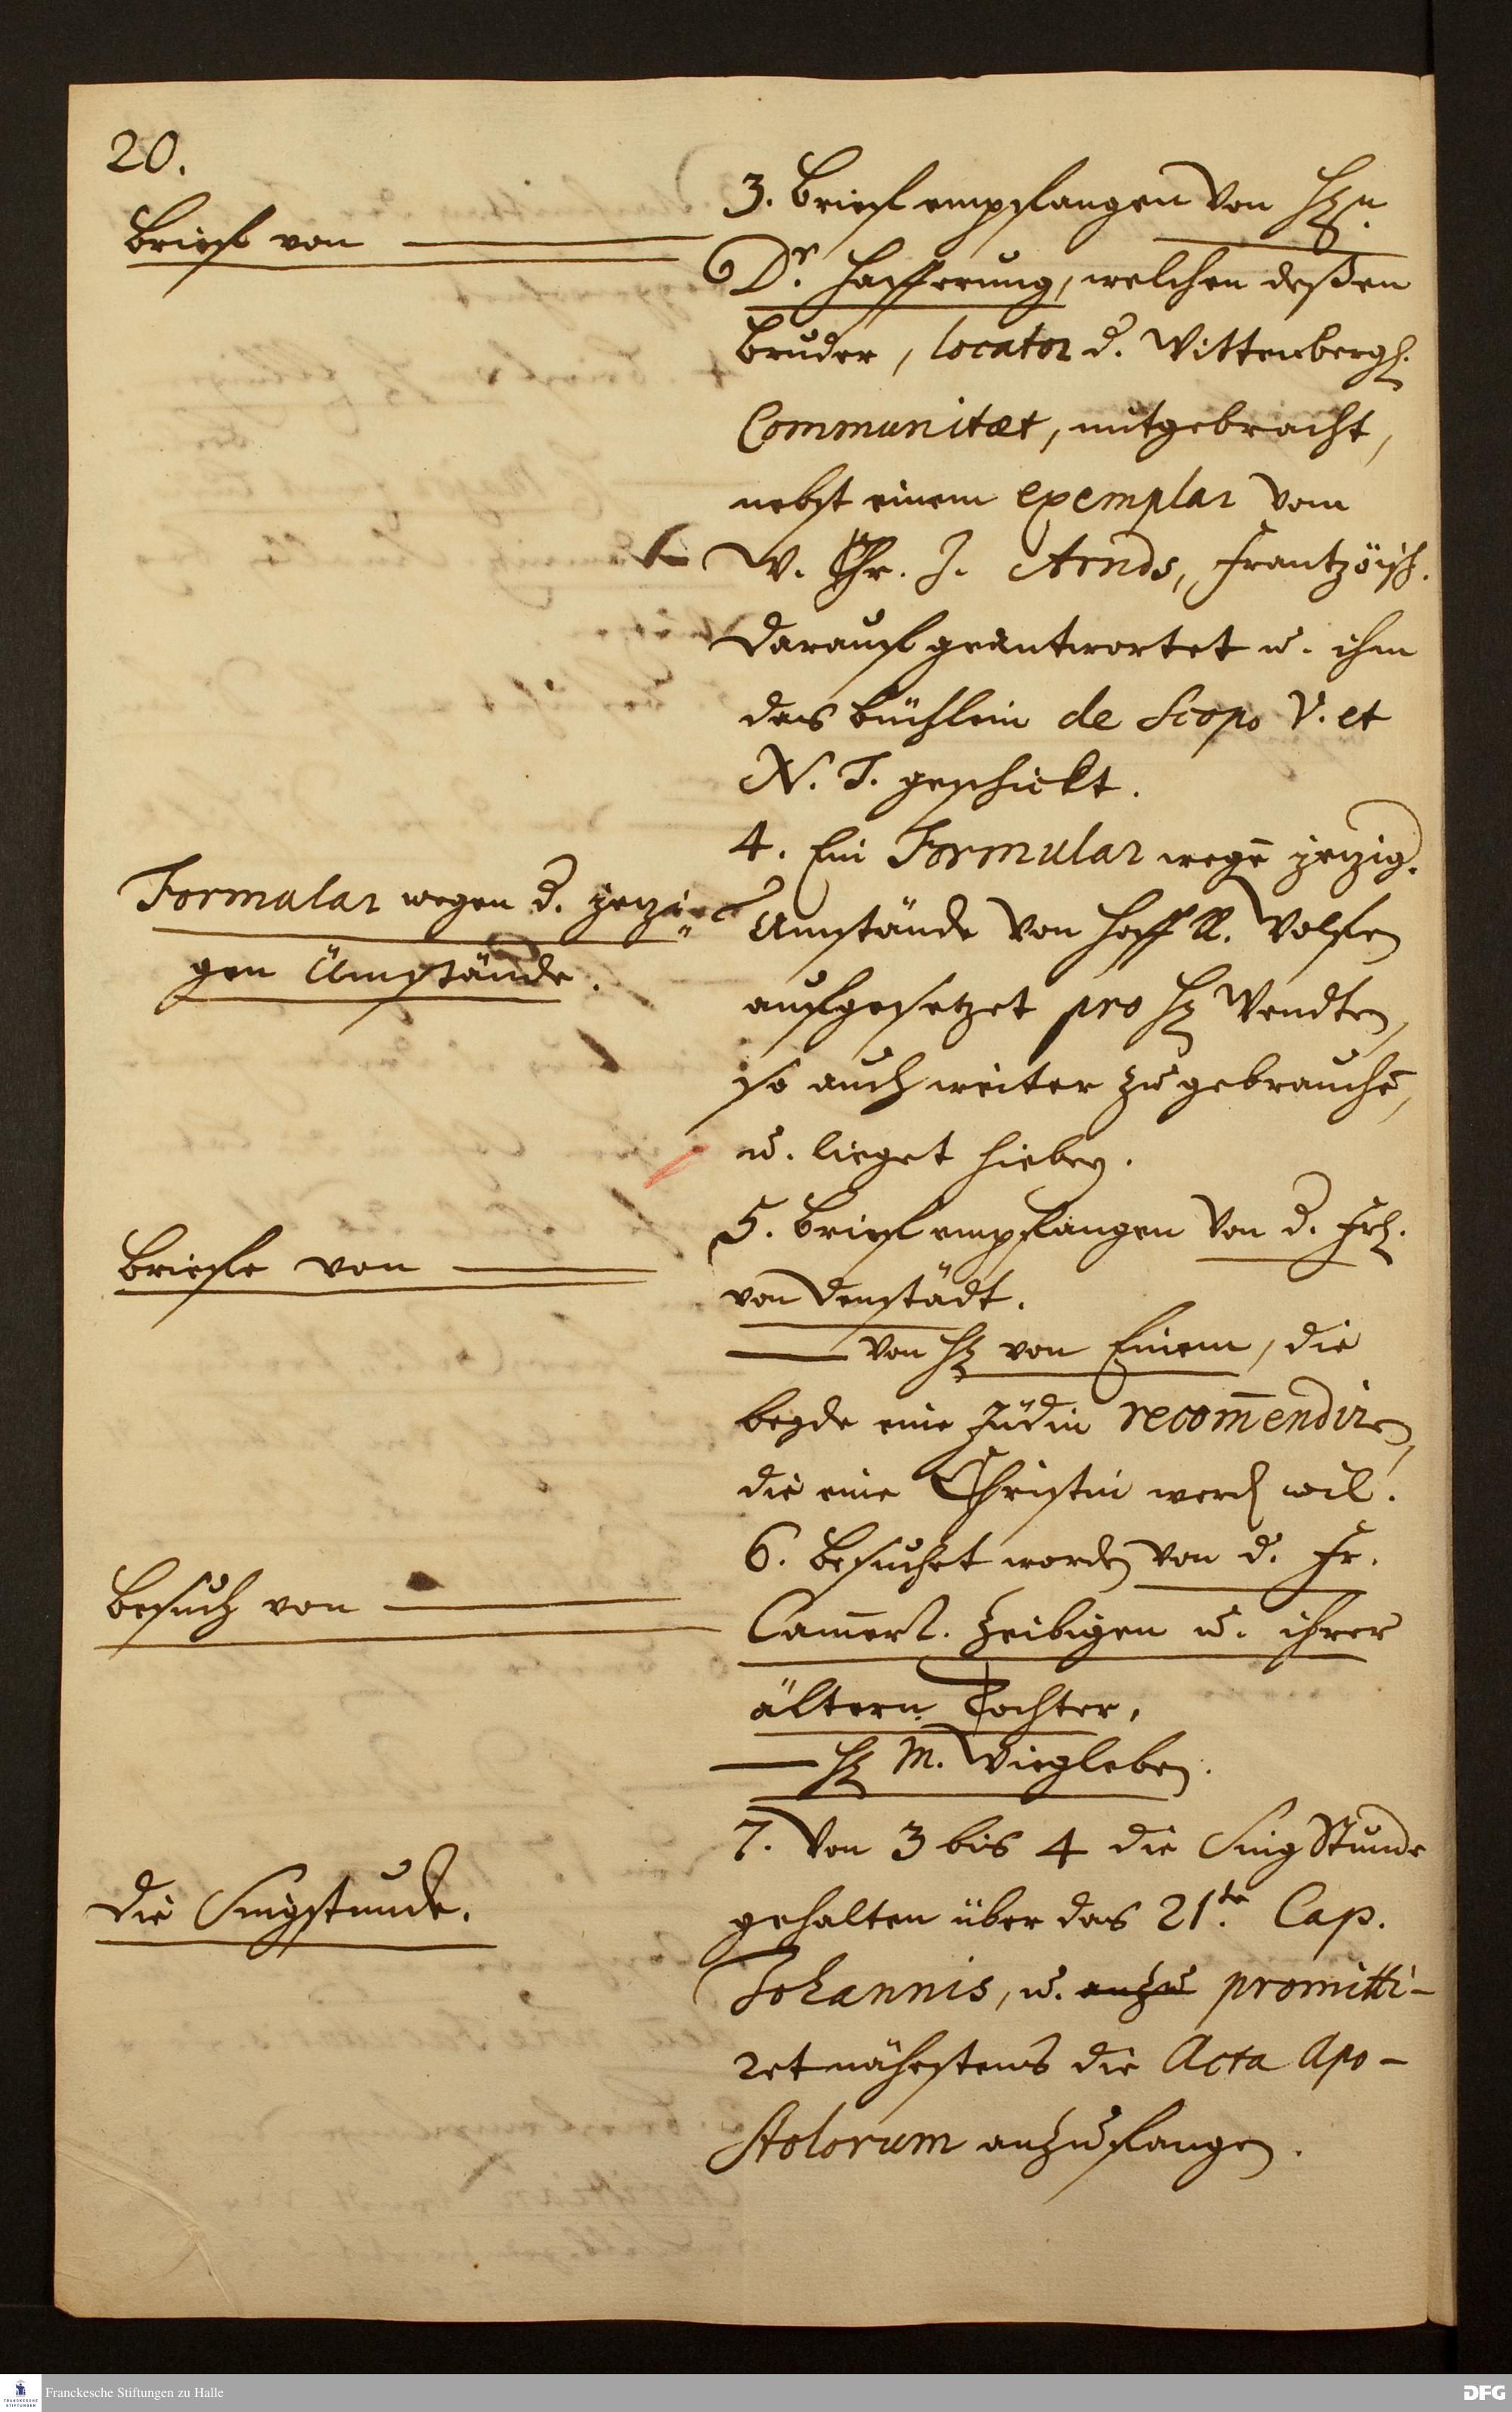 20.
Brieff von
3. Brieff empfangen von Hrn
Dr. Hafferung, welchen deßen
Bruder, locator d. Wittenbergis.
Communitæt, mitgebracht,
nebst einem exemplar vom
W. Chr. J. Arnds, Frantzöisch.
Darauff geantwortet u. ihm
das Büchlein de Scopo V. et
N. T. geschickt.
Formular wegen d. jetzi-
gen Umstände.
4. Ein Formular wegē jetzig.
Umstände von Hoff R. Wolfen
auffgesetzet pro Hr Wendten,
so auch weiter zu gebrauchē,
u. lieget hiebey.
Brieffe von
5. Brieff empfangen von d. Frl.
von Denstädt.
von Hr von Einem, die
beyde eine Jüdin recom̄endiren,
die eine Christin werden wil.
Besuch von
6. Besuchet worden von d. Fr.
Zeibigen u. ihrer
ältern Tochter.
Hr M. Wiegleben.
Die Singstunde.
7. Von 3 bis 4 die Sing Stunde
gehalten über das 21te. Cap.
Johannis, u. anzu promitti-
ret nähestens die Acta Apo-
stolorum anzufangen.
Franckesche Stiftungen zu Halle
FRANCKESCHE STIFTUNGEN
DFG